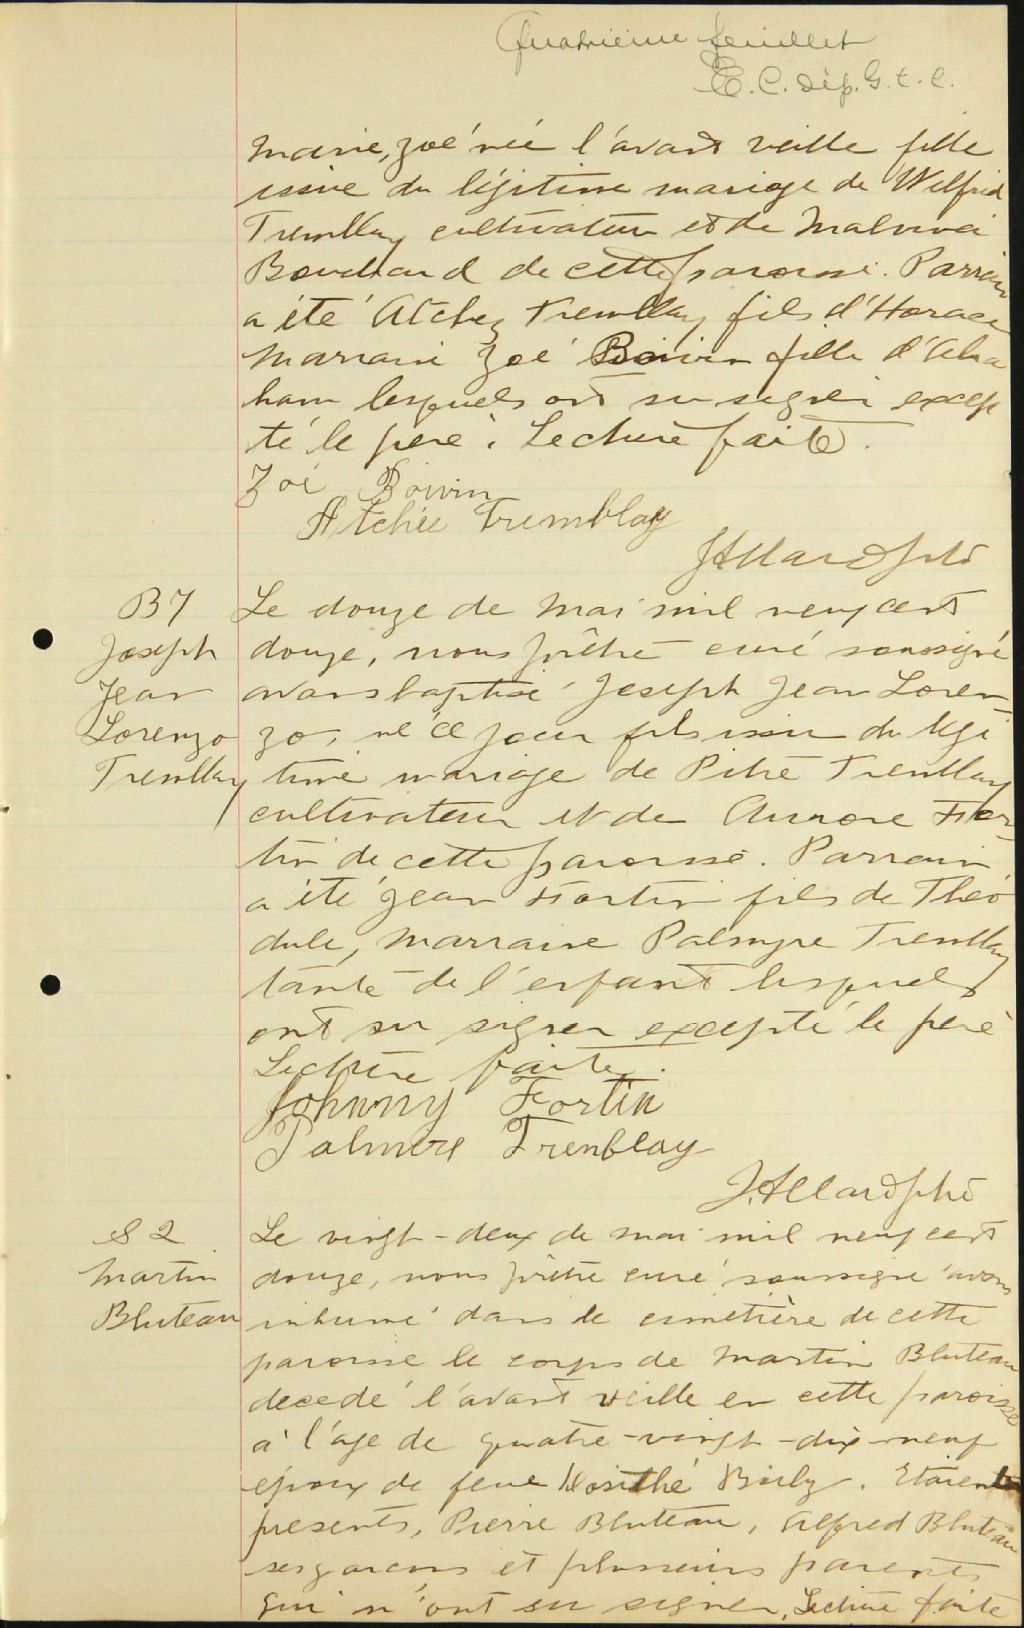 Quatrième feuillet
E. C. Dép. G. t. C.
Marie, Zoé née l'avant veille fille
issue du légitime mariage de Wilfrid
Tremblay cultivateur et de Malvina
Bouchard de cette paroisse. Parrain
a été Atchez Tremblay fils d'Horace
Marraine Zoé Boivin fille d'Abra
ham lesquels ont su signer excep
té le père. Lecture faite.
Zoé Boivin
Atchée Tremblay
J Allard ptre
B 7
Joseph
Jean
Lorenzo
Tremblay
Le douze de mai mil neuf cent
douze, nous prêtre curé soussigné
avons baptisé Joseph Jean Loren-
zo, né ce jour fils issu du légi
time mariage de Pitre Tremblay
cultivateur et de Aurore For-
tin de cette paroisse. Parrain
a été Jean Fortin fils de Théo
dule, Marraine Palmyre Tremblay
tante de l'enfant lesquels
ont su signer excepté le père
Lecture faite.
Johnny Fortin
Palmire Tremblay
J. Allard ptre
S 2
Martin
Bluteau
Le vingt-deux de mai mil neuf cent
douze, nous prêtre curé soussigné avons
inhumé dans le cimetière de cette
paroisse le corps de Martin Bluteau
décédé l'avant veille en cette paroisse
à l'age de quatre-vingt-dix-neuf
époux de feue Bily. Etaient
présents, Pierre Bluteau, Alfred Bluteau
ses garçons et plusieurs parents
qui n'ont su signer, Lecture faite